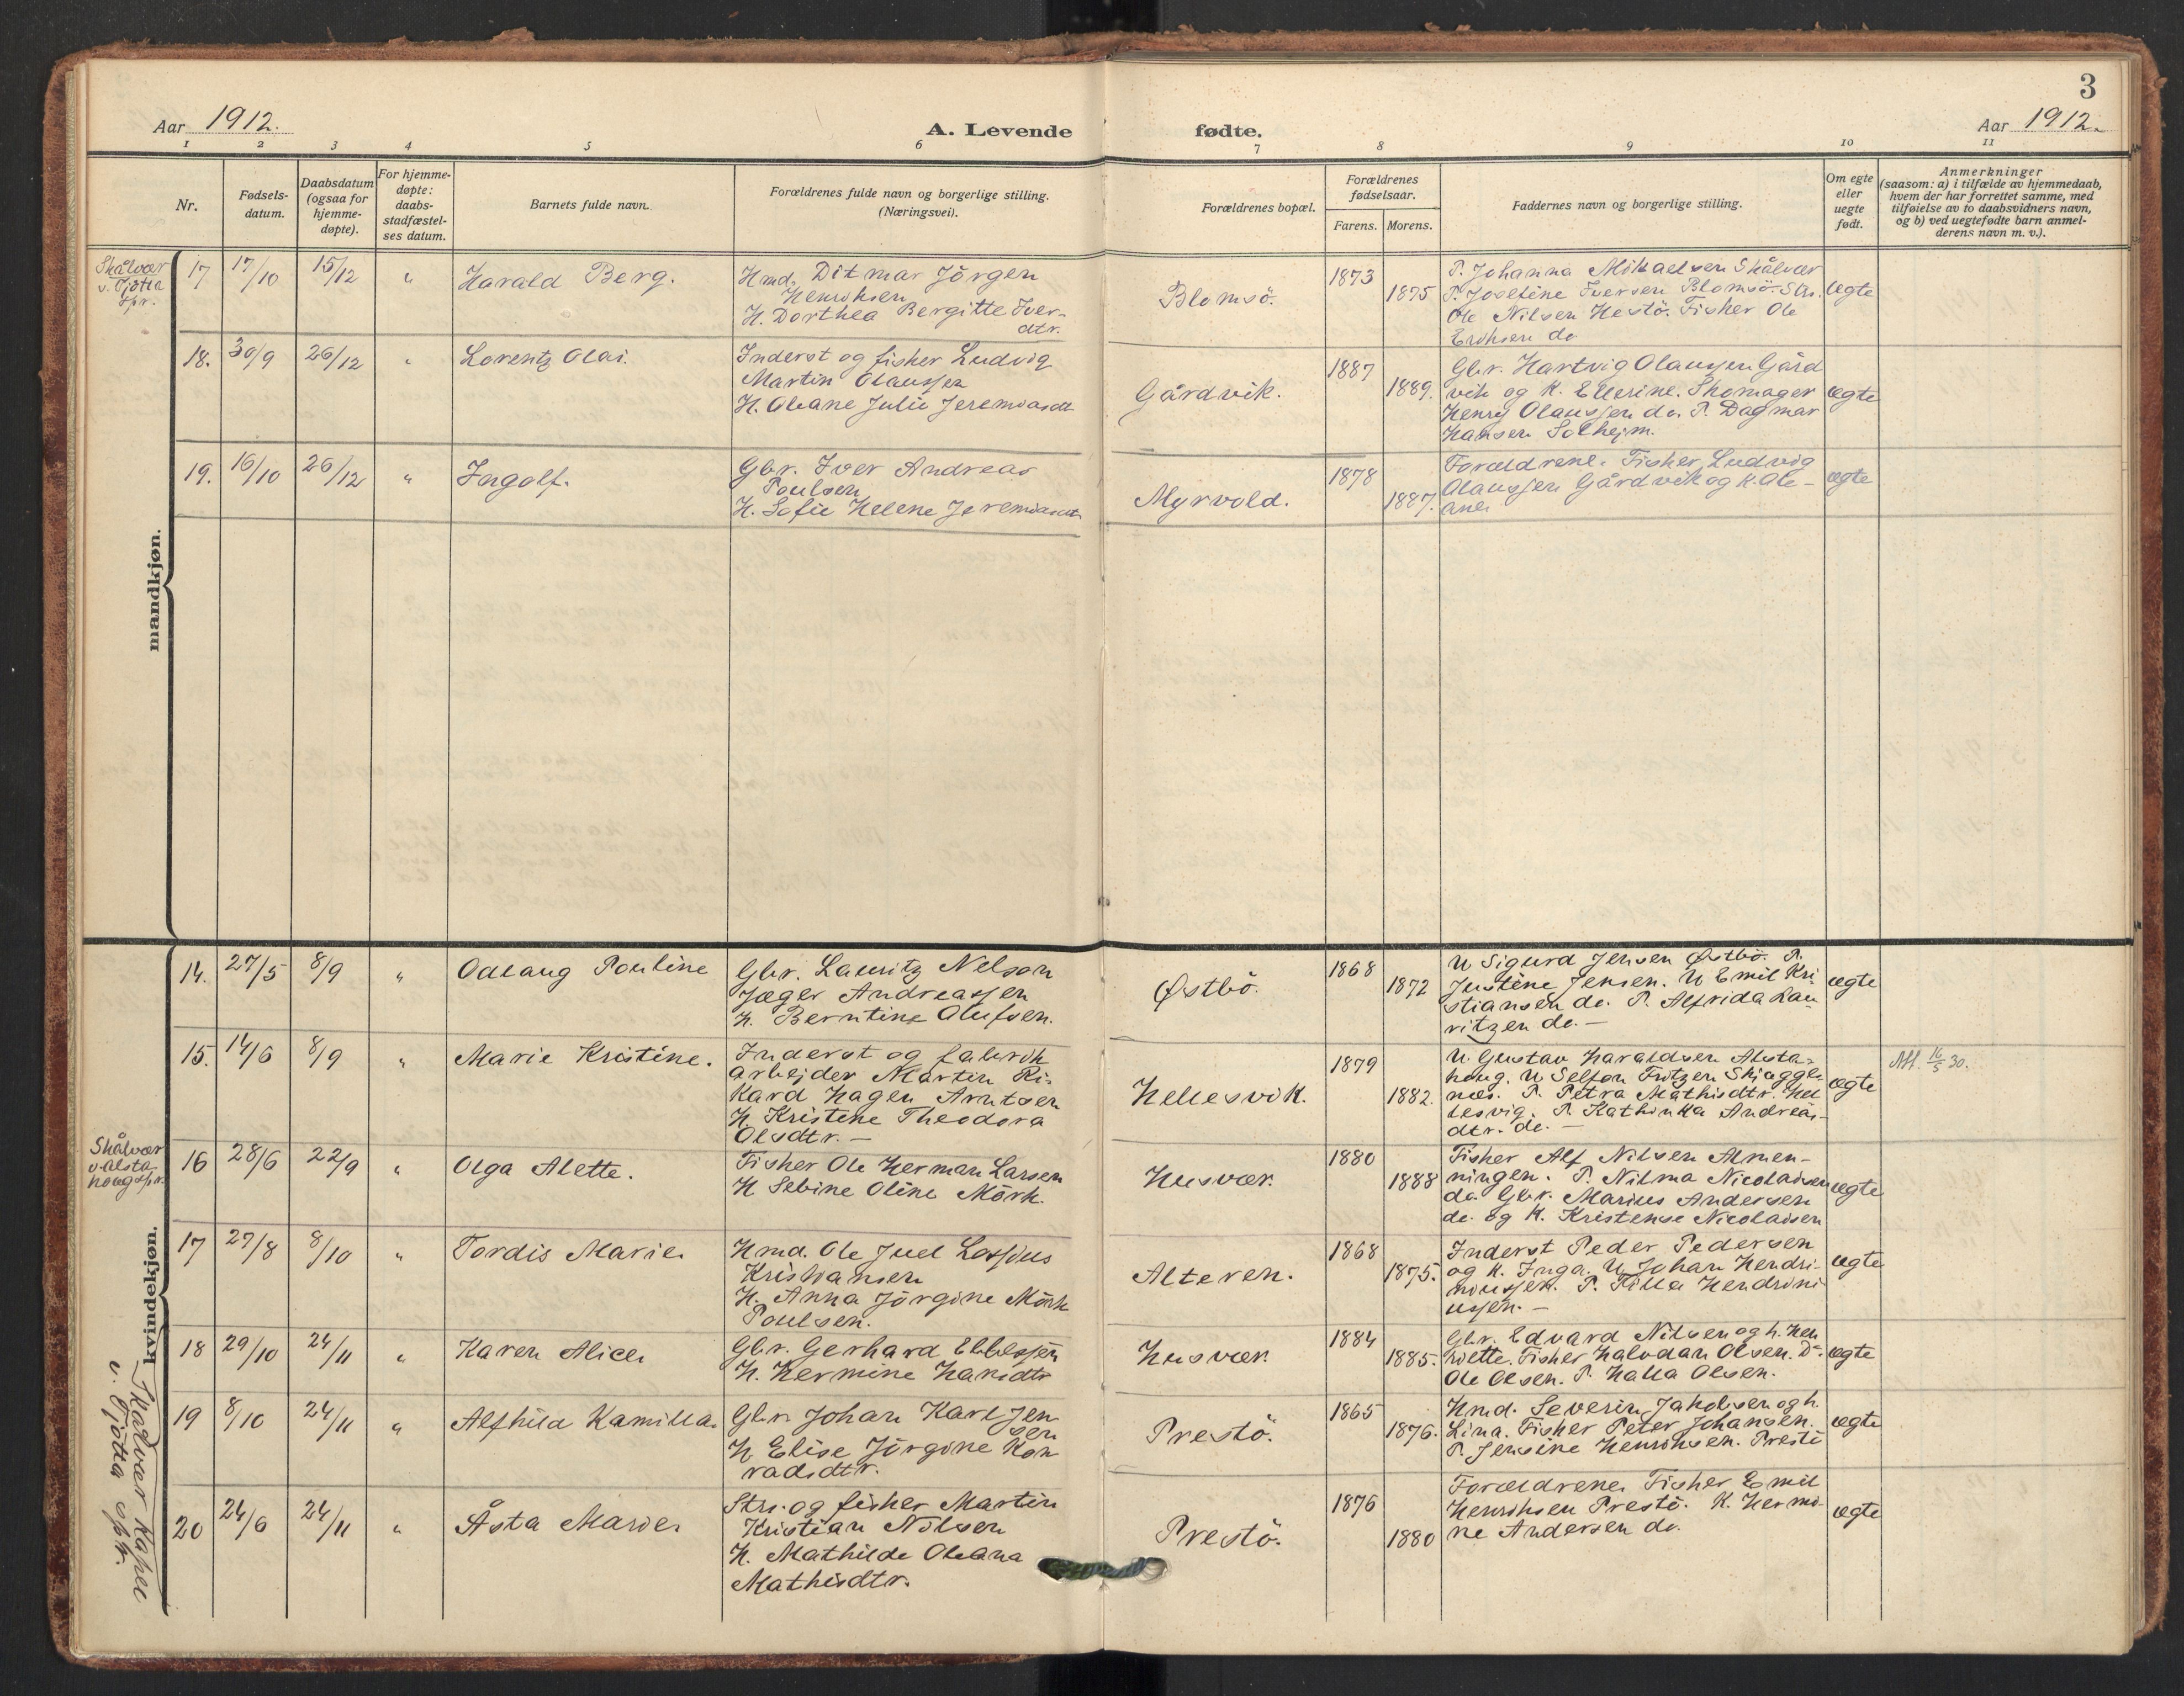 3
Aar 1912.
A. Levende fødte.
Aar 1912.
1 2 3 4 5 6 7 8 9 10 11
Nr.
Fødsels-
datum.
Daabsdatum
(ogsaa for
hjemme-
døpte).
For hjemme-
døpte:
daabs-
stadfæstel-
ses datum.
Barnets fulde navn.
Forældrenes fulde navn og borgerlige stilling.
(Næringsvei).
Forældrenes bopæl.
Forældrenes
fødselsaar.
Farens. Morens.
Faddernes navn og borgerlige stilling.
Om egte
eller
uegte
født.
Anmerkninger
(saasom: a) i tilfælde av hjemmedaab,
hvem der har forrettet samme, med
tilføielse av to daabsvidners navn,
og b) ved uegtefødte barn anmel-
derens navn m. v.).
mandkjøn.
Skålvær
v. Tjøtta
spr.
17 17/10 15/12 " Harald Berg.
Hmd. Ditmar Jörgen
Henriksen
H. Dorthea Bergitte Iver-
dtr.
Blomsö.
1873
1875
P. Johanna Mikaelsen Skålvær
P. Josefine Iversen Blomsö. Str.
Ole Nilsen Hestö. Fisker Ole
Eriksen do
Ægte
18. 30/9 26/12 " Lorentz Olai.
Inderst og fisker Ludvig
Martin Olaussen
H. Oleane Julie Jeremiasdt
Gårdvik.
1887
1889.
Gbr. Hartvig Olaussen Gård
vik og K. Ellerine. Skomager
Henry Olaussen do. P. Dagmar
Hansen Solhejm.
ægte
19. 16/10 26/12 " Ingolf.
Gbr. Iver Andreas
Poulsen
H. Sofie Helene Jeremiasdt
Myrvold.
1878
1887.
Forældrene. Fisker Ludvig
Olaussen Gårdvik og K. Ole-
ane.
ægte
kvindekjøn.
14. 27/5 8/9 " Odlaug Pouline
Gbr. Lauritz Nelson
Jæger Andreassen
H. Berntine Olufsen.
Østbö.
1868
1872
U Sigurd Jensen Østbö. P.
Justine Jensen. U Emil Kri
stiansen do. P. Alfrida Lau
ritzen do. —
ægte
15. 14/6 8/9 " Marie Kristine.
Inderst og fabrik
arbejder Martin Ri-
kard Hagen Arntsen
H. Kristine Theodora
Olsdtr. —
Hellesvik.
1879
1882.
U. Gustav Haraldsen Alsta-
houg. U Selfon Fritzen Skjeggje
nes. P. Petra Mathisdtr. Hel
lesvig. P. Kathinka Andreas-
dtr. do. —
ægte
Att. 16/5 30.
Skålvær
v. Alsta
houg spr.
16 28/6 22/9 " Olga Alette.
Fisker Ole Herman Larsen
H Sebine Oline Mörk.
Husvær.
1880
1888
Fisker Alf Nilsen Almen-
ningen. P. Nilma Nicolaisen
do Gbr. Marius Andersen
do. og K. Kristense Nicolaisen
ægte
17 27/8 8/10 " Tordis Marie.
Hmd. Ole Juel Lossius
Kristiansen
H. Anna Jörgine Mörk
Poulsen.
Alteren.
1868
1875.
Inderst Peder Pedersen
og K. Inga. U Johan Hendri-
niussen. P. Hendrini
ussen. —
ægte
18 29/10 24/11 " Karen Alice.
Gbr. Gerhard Ebbessen
H. Hermine Hansdtr
Husvær.
1884
1885.
Gbr. Edvard Nilsen og h. Hen
riette. Fisker Halvdan Olsen. Do
Ole Olsen. P. Halla Olsen.
ægte
19 8/10 24/11 " Alfhild Kamilla.
Gbr. Johan Karl Jen
sen
H Elise Jörgine Kon
radsdtr.
Prestö.
1865
1876.
Hmd. Severin Jakobsen og h.
Lina. Fisker Peter Johansen.
P. Jensine Henriksen. Prestö
ægte
Skålvær Kapel
v. Tjötta spr.
20 24/6 24/11 " Åsta Marie.
Str. og fisker Martin
Kristian Nilsen
H. Mathilde Oleana
Mathisdtr.
Prestö.
1876
1880
Forældrene. Fisker Emil
Henriksen Prestö. K. Hermi-
ne Andersen do.
ægte